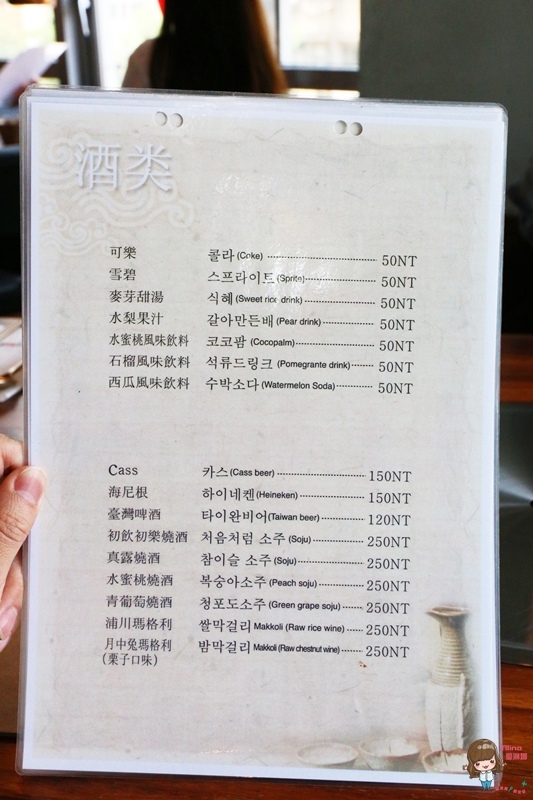 酒类
可樂 콜라 (Coke) 50NT
雪碧 스프라이트 (Sprite) 50NT
麥芽甜湯 식혜 (Sweet rice drink) 50NT
水梨果汁 갈아만든배 (Pear drink) 50NT
水蜜桃風味飲料 코코팜 (Cocopalm) 50NT
石榴風味飲料 석류드링크 (Pomegrante drink) 50NT
西瓜風味飲料 수박소다 (Watermelon Soda) 50NT
Cass 카스 (Cass beer) 150NT
海尼根 하이네켄 (Heineken) 150NT
臺灣啤酒 타이완비어 (Taiwan beer) 120NT
初飲初樂燒酒 처음처럼 소주 (Soju) 250NT
真露燒酒 참이슬 소주 (Soju) 250NT
水蜜桃燒酒 복숭아소주 (Peach soju) 250NT
青葡萄燒酒 청포도소주 (Green grape soju) 250NT
浦川瑪格利 쌀막걸리 Makkoli (Raw rice wine) 250NT
月中兔瑪格利 밤막걸리 Makkoli (Raw chestnut wine) 250NT
(栗子口味)
Nina